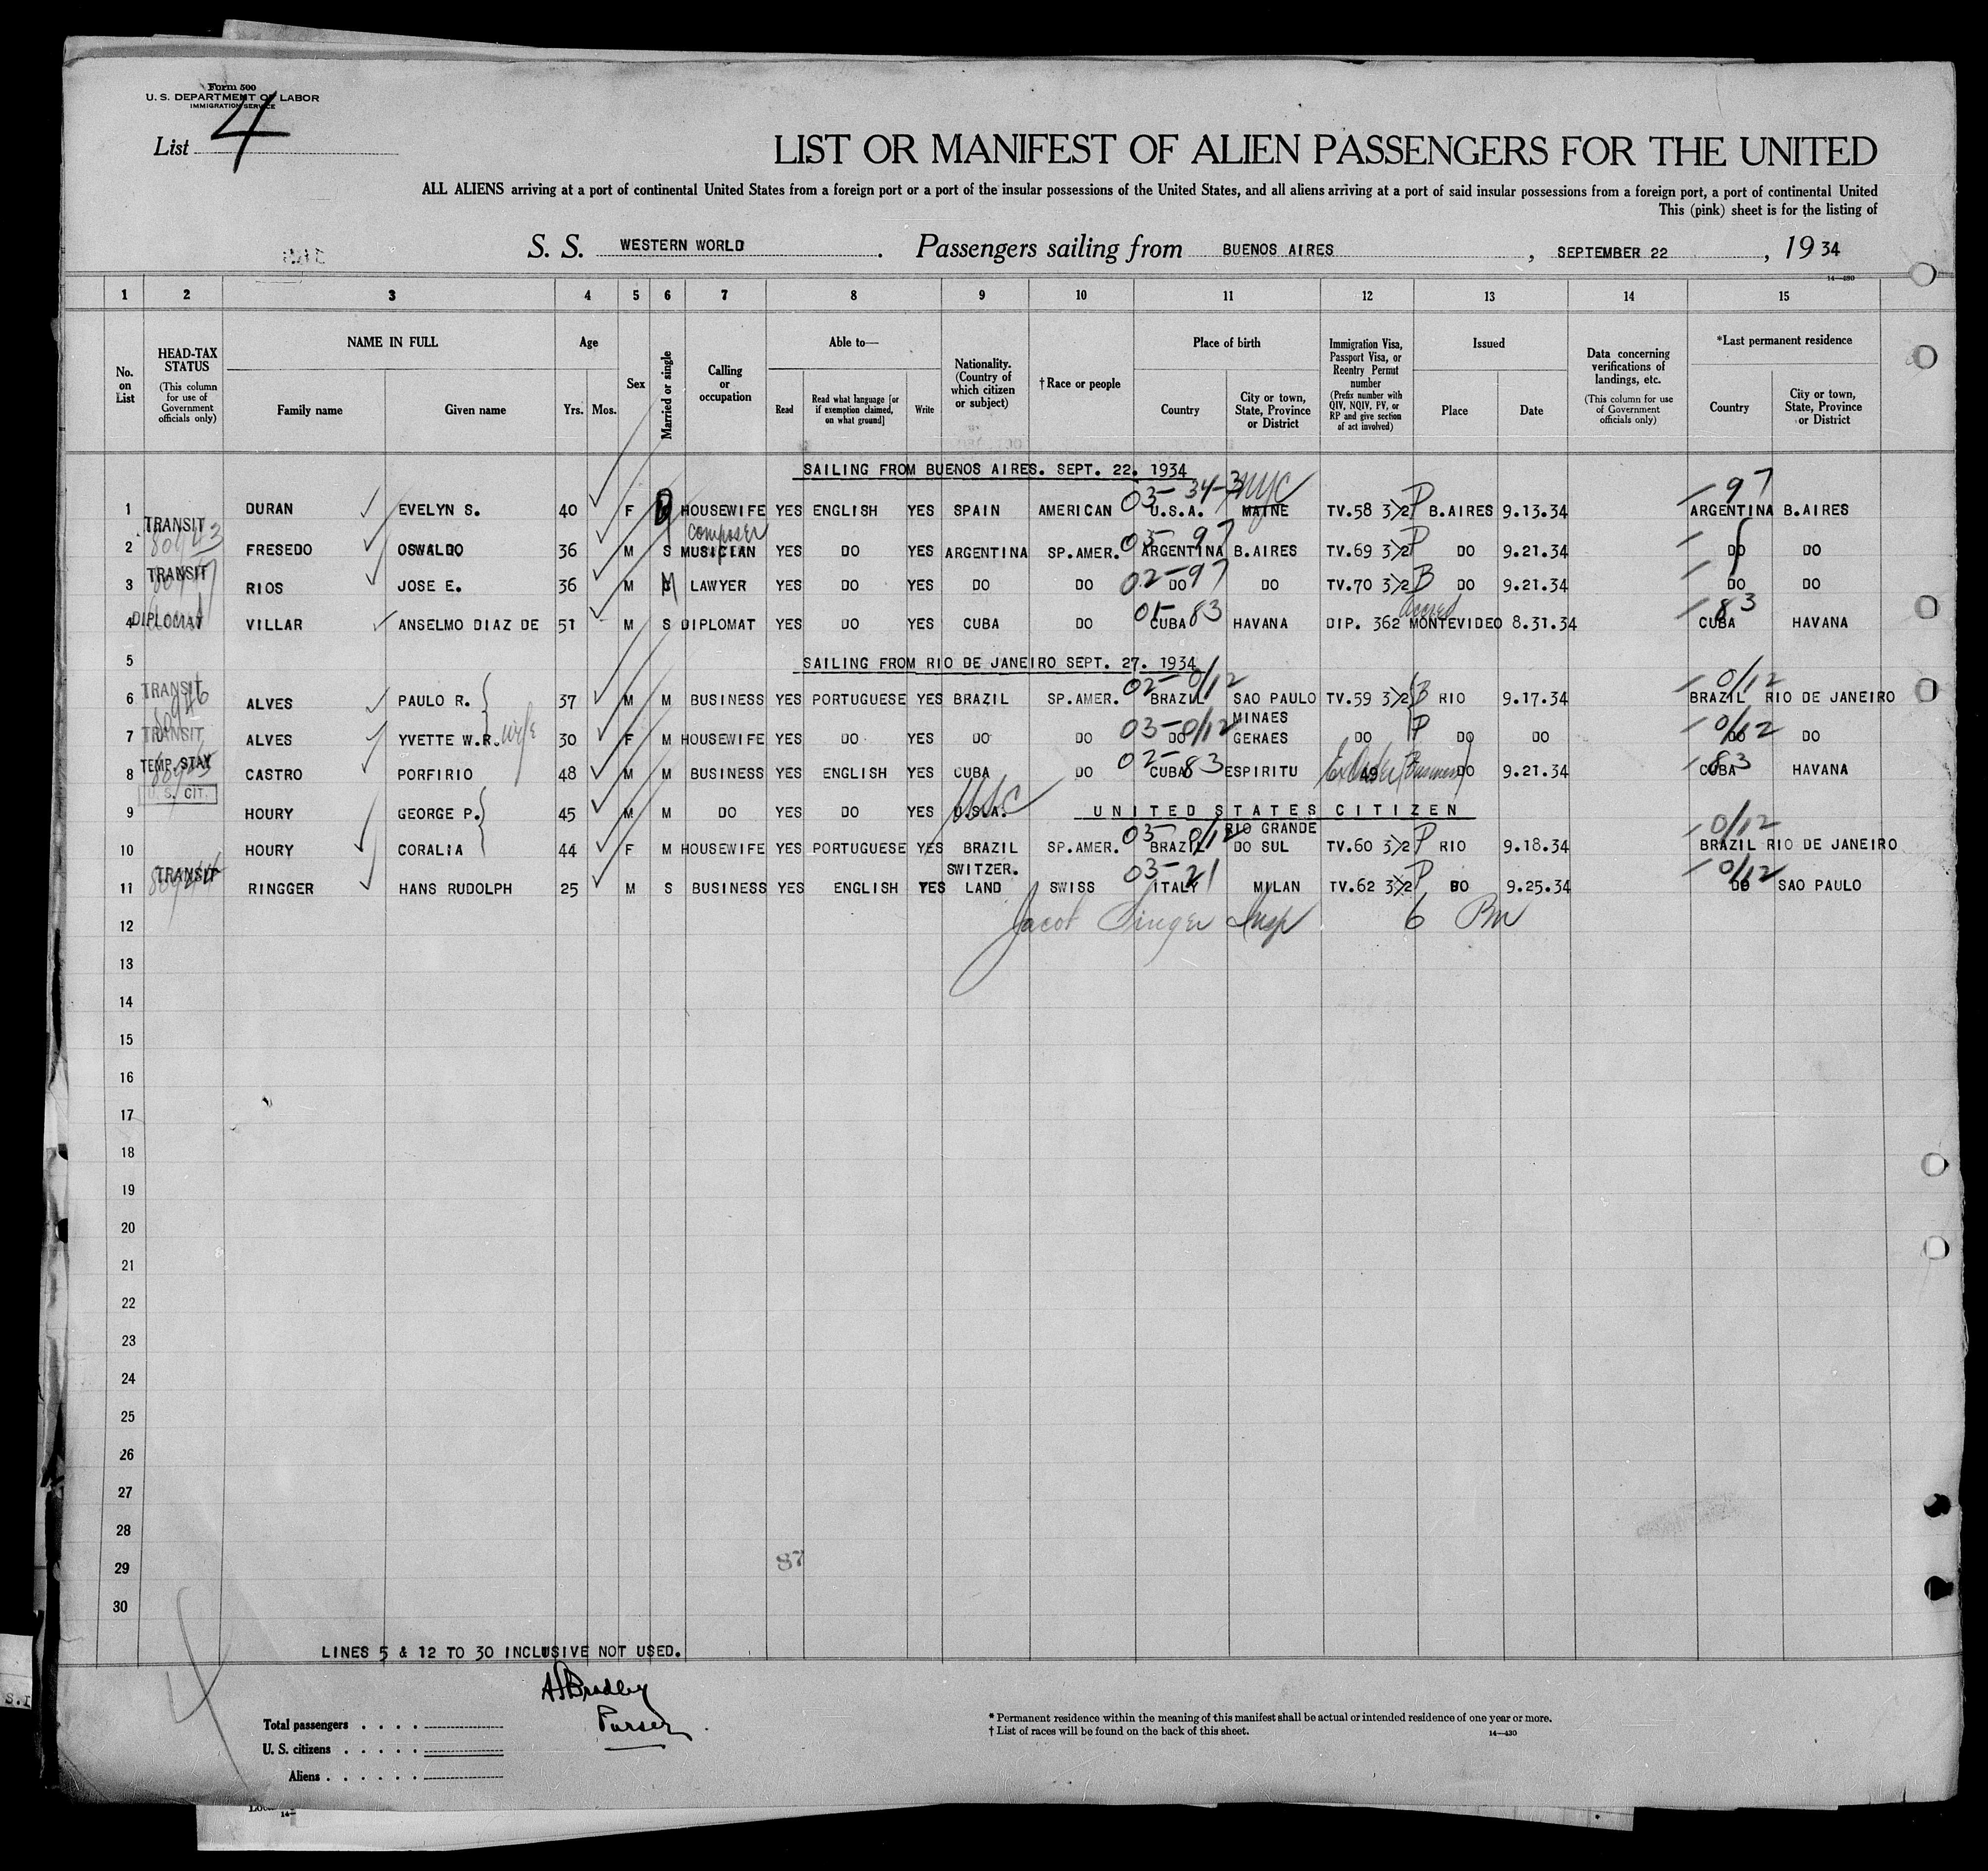 Form 500
U. S. DEPARTMENT OF LABOR
IMMIGRATION SERVICE
List 4
LIST OR MANIFEST OF ALIEN PASSENGERS FOR THE UNITED
ALL ALIENS arriving at a port of continental United States from a foreign port or a port of the insular possessions of the United States, and all aliens arriving at a port of said insular possessions from a foreign port, a port of continental United
This (pink) sheet is for the listing of
S. S. WESTERN WORLD . Passengers sailing from BUENOS AIRES , SEPTEMBER 22 , 19 34
14—430
1 2 3 4 5 6 7 8 9 10 11 12 13 14 15
No. on List
HEAD-TAX STATUS (This column for use of Government officials only)
NAME IN FULL
Family name Given name
Age
Yrs. Mos.
Sex
Married or single
Calling or occupation
Able to—
Read
Read what language [or if exemption claimed, on what ground]
Write
Nationality. (Country of which citizen or subject)
† Race or people
Place of birth
Country
City or town, State, Province or District
Immigration Visa, Passport Visa, or Reentry Permit number (Prefix number with QIV, NQIV, PV, or RP and give section of act involved)
Issued
Place Date
Data concerning verifications of landings, etc. (This column for use of Government officials only)
*Last permanent residence
Country
City or town, State, Province or District
SAILING FROM BUENOS AIRES. SEPT. 22. 1934
03- 34-3 NYC 97
1 DURAN EVELYN S. 40 F D HOUSEWIFE YES ENGLISH YES SPAIN AMERICAN U.S.A. MAINE TV.58 3>2 P B.AIRES 9.13.34 ARGENTINA B.AIRES
TRANSIT composer 03- 97
2 FRESEDO OSWALDO 36 M S MUSICIAN YES DO YES ARGENTINA SP.AMER. ARGENTINA B.AIRES TV.69 3>2 P DO 9.21.34 DO DO
TRANSIT 02-97
3 RIOS JOSE E. 36 M M LAWYER YES DO YES DO DO DO DO TV.70 3>2 B DO 9.21.34 DO DO
DIPLOMAT 01-83 83
4 VILLAR ANSELMO DIAZ DE 51 M S DIPLOMAT YES DO YES CUBA DO CUBA HAVANA DIP. 362 MONTEVIDEO 8.31.34 CUBA HAVANA
5 SAILING FROM RIO DE JANEIRO SEPT. 27. 1934
TRANSIT 80946 02-0/12 0/12
6 ALVES PAULO R. 37 M M BUSINESS YES PORTUGUESE YES BRAZIL SP.AMER. BRAZIL SAO PAULO TV.59 3>2 B RIO 9.17.34 BRAZIL RIO DE JANEIRO
TRANSIT 03-0/12 0/12
7 ALVES YVETTE W.R. wife 30 F M HOUSEWIFE YES DO YES DO DO DO MINAES GERAES DO P DO DO DO DO
TEMP. STAY 02-83 83
8 CASTRO PORFIRIO 48 M M BUSINESS YES ENGLISH YES CUBA DO CUBA ESPIRITU 49 DO 9.21.34 CUBA HAVANA
U. S. CIT. USC
9 HOURY GEORGE P. 45 M M DO YES DO YES U.S.A. UNITED STATES CITIZEN
03-0/12 0/12
10 HOURY CORALIA 44 F M HOUSEWIFE YES PORTUGUESE YES BRAZIL SP.AMER. BRAZIL RIO GRANDE DO SUL TV.60 3>2 P RIO 9.18.34 BRAZIL RIO DE JANEIRO
TRANSIT 80944 03-21 0/12
11 RINGGER HANS RUDOLPH 25 M S BUSINESS YES ENGLISH YES SWITZER. LAND SWISS ITALY MILAN TV.62 3>2 P DO 9.25.34 DO SAO PAULO
12 Jacob Singer Insp 6
13
14
15
16
17
18
19
20
21
22
23
24
25
26
27
28
29 87
30
LINES 5 & 12 TO 30 INCLUSIVE NOT USED.
Bradley
Purser
Total passengers
U. S. citizens
Aliens
* Permanent residence within the meaning of this manifest shall be actual or intended residence of one year or more.
† List of races will be found on the back of this sheet.
14—430